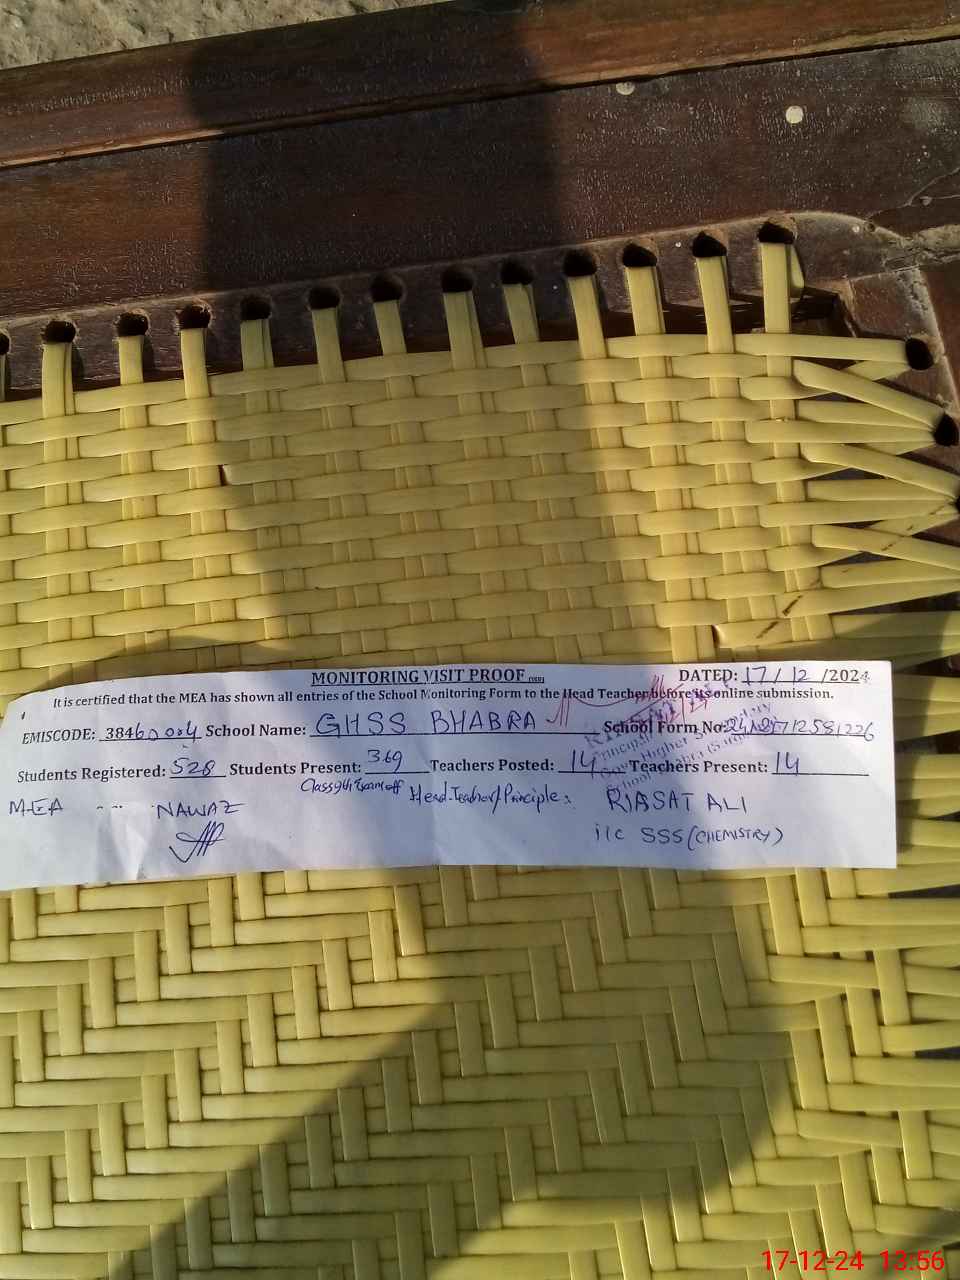 MONITORING VISIT PROOF
DATED: 17 / 12 /2024
It is certified that the MEA has shown all entries of the School Monitoring Form to the Head Teacher before its online submission.
EMISCODE: 38460004 School Name: GHSS BHABRA School Form No:
Students Registered: 528 Students Present: 369 Teachers Posted: 14 Teachers Present: 14
Class 9th Exam off
MEA NAWAZ Head Teacher/Principle: RIASAT ALI
i/c SSS (CHEMISTRY)
17-12-24 13:56